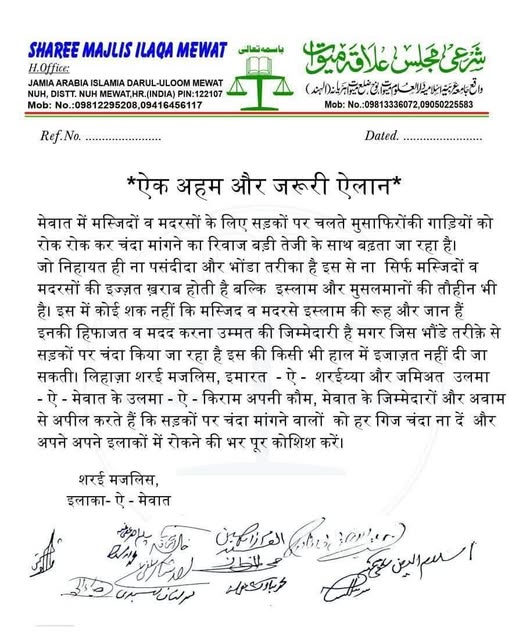 SHAREE MAJLIS ILAQA MEWAT
H.Office:
JAMIA ARABIA ISLAMIA DARUL-ULOOM MEWAT
NUH, DISTT. NUH MEWAT,HR.(INDIA) PIN:122107
Mob: No.:09812295208,09416456117
باسمه تعالى
شرعی مجلس علاقہ میوات
Mob: No.:09813336072,09050225583
Ref.No. ........................
Dated. .........................
*ऐक अहम और जरूरी ऐलान*
मेवात में मस्जिदों व मदरसों के लिए सड़कों पर चलते मुसाफिरोंकी गाड़ियों को
रोक रोक कर चंदा मांगने का रिवाज बड़ी तेजी के साथ बढ़ता जा रहा है।
जो निहायत ही ना पसंदीदा और भोंडा तरीका है इस से ना सिर्फ मस्जिदों व
मदरसों की इज्ज़त ख़राब होती है बल्कि इस्लाम और मुसलमानों की तौहीन भी
है। इस में कोई शक नहीं कि मस्जिद व मदरसे इस्लाम की रूह और जान हैं
इनकी हिफाजत व मदद करना उम्मत की जिम्मेदारी है मगर जिस भौंडे तरीक़े से
सड़कों पर चंदा किया जा रहा है इस की किसी भी हाल में इजाज़त नहीं दी जा
सकती। लिहाज़ा शरई मजलिस, इमारत - ऐ - शरईय्या और जमिअत उलमा
- ऐ - मेवात के उलमा - ऐ - किराम अपनी कौम, मेवात के जिम्मेदारों और अवाम
से अपील करते हैं कि सड़कों पर चंदा मांगने वालों को हर गिज चंदा ना दें और
अपने अपने इलाकों में रोकने की भर पूर कोशिश करें।
शरई मजलिस,
इलाका- ऐ - मेवात